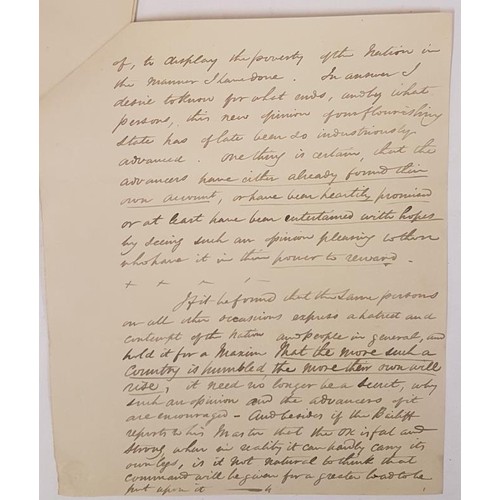 of, to display the poverty of the Nation in
the manner I have done. In answer I
desire to know for what ends, and by what
persons, this new opinion of our flourishing
State has of late been so industriously
advanced. One thing is certain, that the
advancers have either already found their
own account, or have been heartily promised
or at least have been entertained with hopes
by seeing such an opinion pleasing to those
who have it in their power to reward.
+ + - - -
If it be found that the same persons
on all other occasions express a hatred and
contempt of the nation and people in general, and
hold it for a Maxim That the more such a
Country is humbled the more their own will
rise, it need no longer be a secret, why
such an opinion and the advancers of it
are encouraged - And besides if the Bailiff
reports to his Master that the ox is fat and
strong when in reality it can hardly carry its
own legs, is it not natural to think that
command will be given for a greater load to be
put upon it